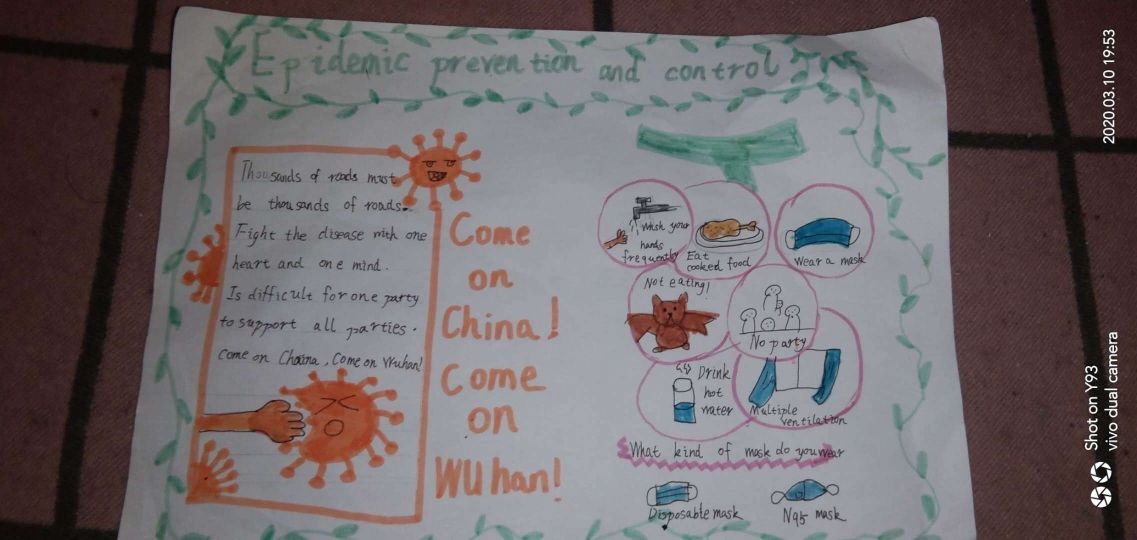 Epidemic prevention and control
Thousands of roads must
be thousands of roads.
Fight the disease with one
heart and one mind.
Is difficult for one party
to support all parties.
come on China, Come on Wuhan!
Come
on
China!
Come
on
WUhan!
Wash your
hands
frequently
Eat
cooked food
Wear a mask
Not eating!
No party
Drink
hot
water
Multiple
ventilation
What kind of mask do you wear
Disposable mask
N95 mask
2020.03.10 19:53
Shot on Y93
vivo dual camera